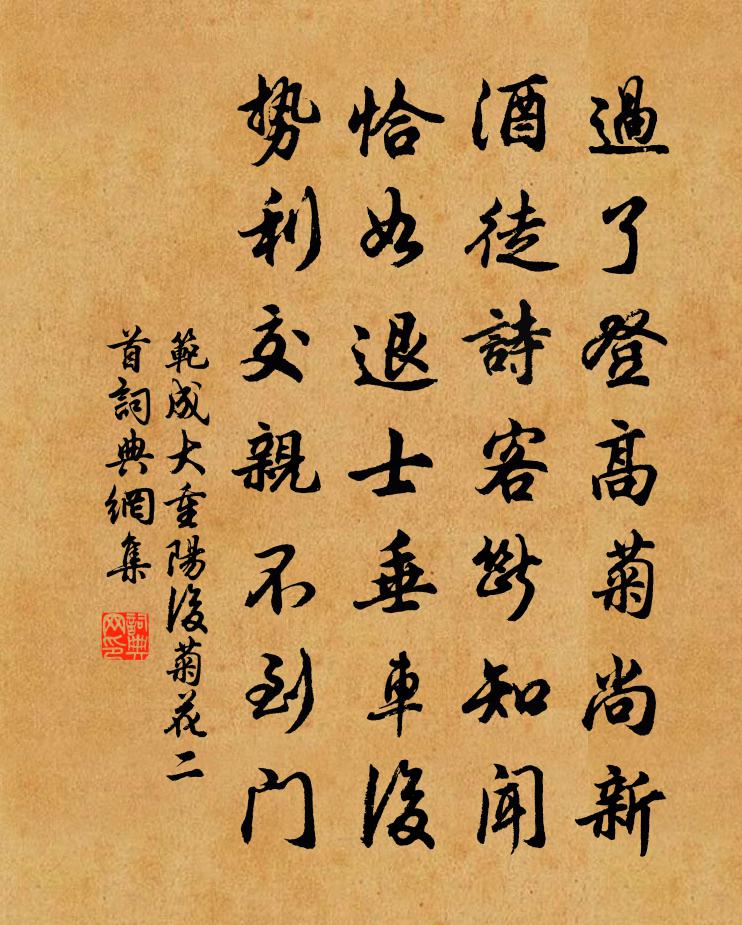 過了登高菊尚新
酒徒詩客斷知聞
恰如退士垂車後
勢利交親不到門
範成大重陽後菊花二
首詞典網集
詞典
网印